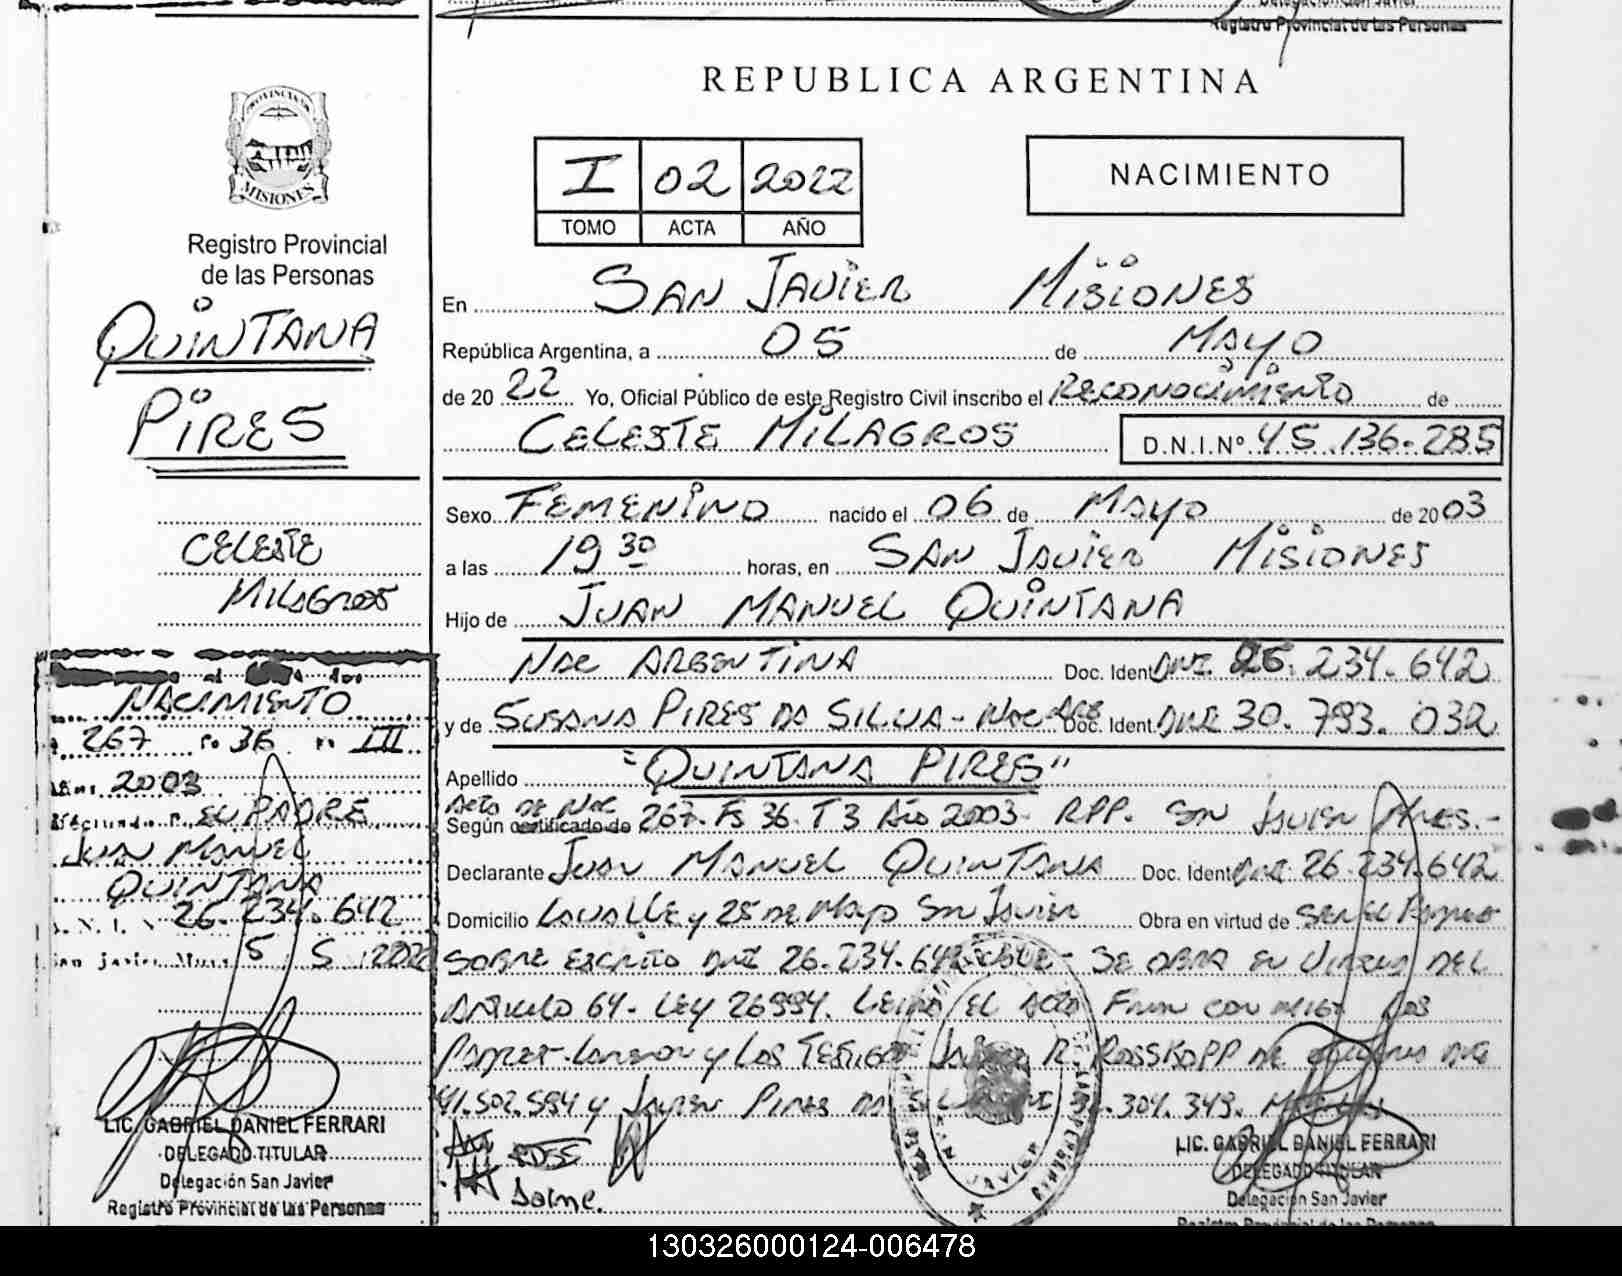 Delegación San Javier
Registro Provincial de las Personas
REPUBLICA ARGENTINA
PROVINCIA DE
MISIONES
Registro Provincial
de las Personas
QUINTANA
PIRES
CELESTE
MILAGROS
NACIMIENTO
267 Fº 36 Tº III
Año 2003
EL PADRE
JUAN MANUEL
QUINTANA
D. N. I. Nº 26.234.642
San Javier, Mnes. 5 5 2022
LIC. GABRIEL DANIEL FERRARI
DELEGADO TITULAR
Delegación San Javier
Registro Provincial de las Personas
I 02 2022
TOMO ACTA AÑO
NACIMIENTO
En SAN JAVIER MISIONES
República Argentina, a 05 de MAYO
de 20 22 Yo, Oficial Público de este Registro Civil inscribo el RECONOCIMIENTO de
CELESTE MILAGROS D.N.I.Nº 45.136.285
Sexo FEMENINO nacido el 06 de MAYO de 20 03
a las 19 30 horas, en SAN JAVIER MISIONES
Hijo de JUAN MANUEL QUINTANA
NAC ARGENTINA Doc. Ident DNI 26.234.642
y de SUSANA PIRES DA SILVA - NAC ARG Doc. Ident DNI 30.793.032
Apellido "QUINTANA PIRES"
ACTA DE NAC
Según certificado de 267. Fs 36. T 3 Año 2003. RPP. SAN JAVIER MNES.-
Declarante JUAN MANUEL QUINTANA Doc. Ident DNI 26.234.642
Domicilio LAVALLE y 25 DE MAYO SAN JAVIER Obra en virtud de SER EL PADRE
SOBRE ESCRITO DNI 26.234.642 VALE - SE OBRA EN VIRTUD DEL
ARTICULO 64 - LEY 26994. LEIDA EL ACTA FIRMAN CON MIGO LOS
y LOS TESTIGOS R. ROSSKOPP DNI
41.502.594 y JAVIER PIRES DA SILVA DNI 304.349.
LIC. GABRIEL DANIEL FERRARI
DELEGADO TITULAR
Delegación San Javier
Registro Provincial de las Personas
130326000124-006478